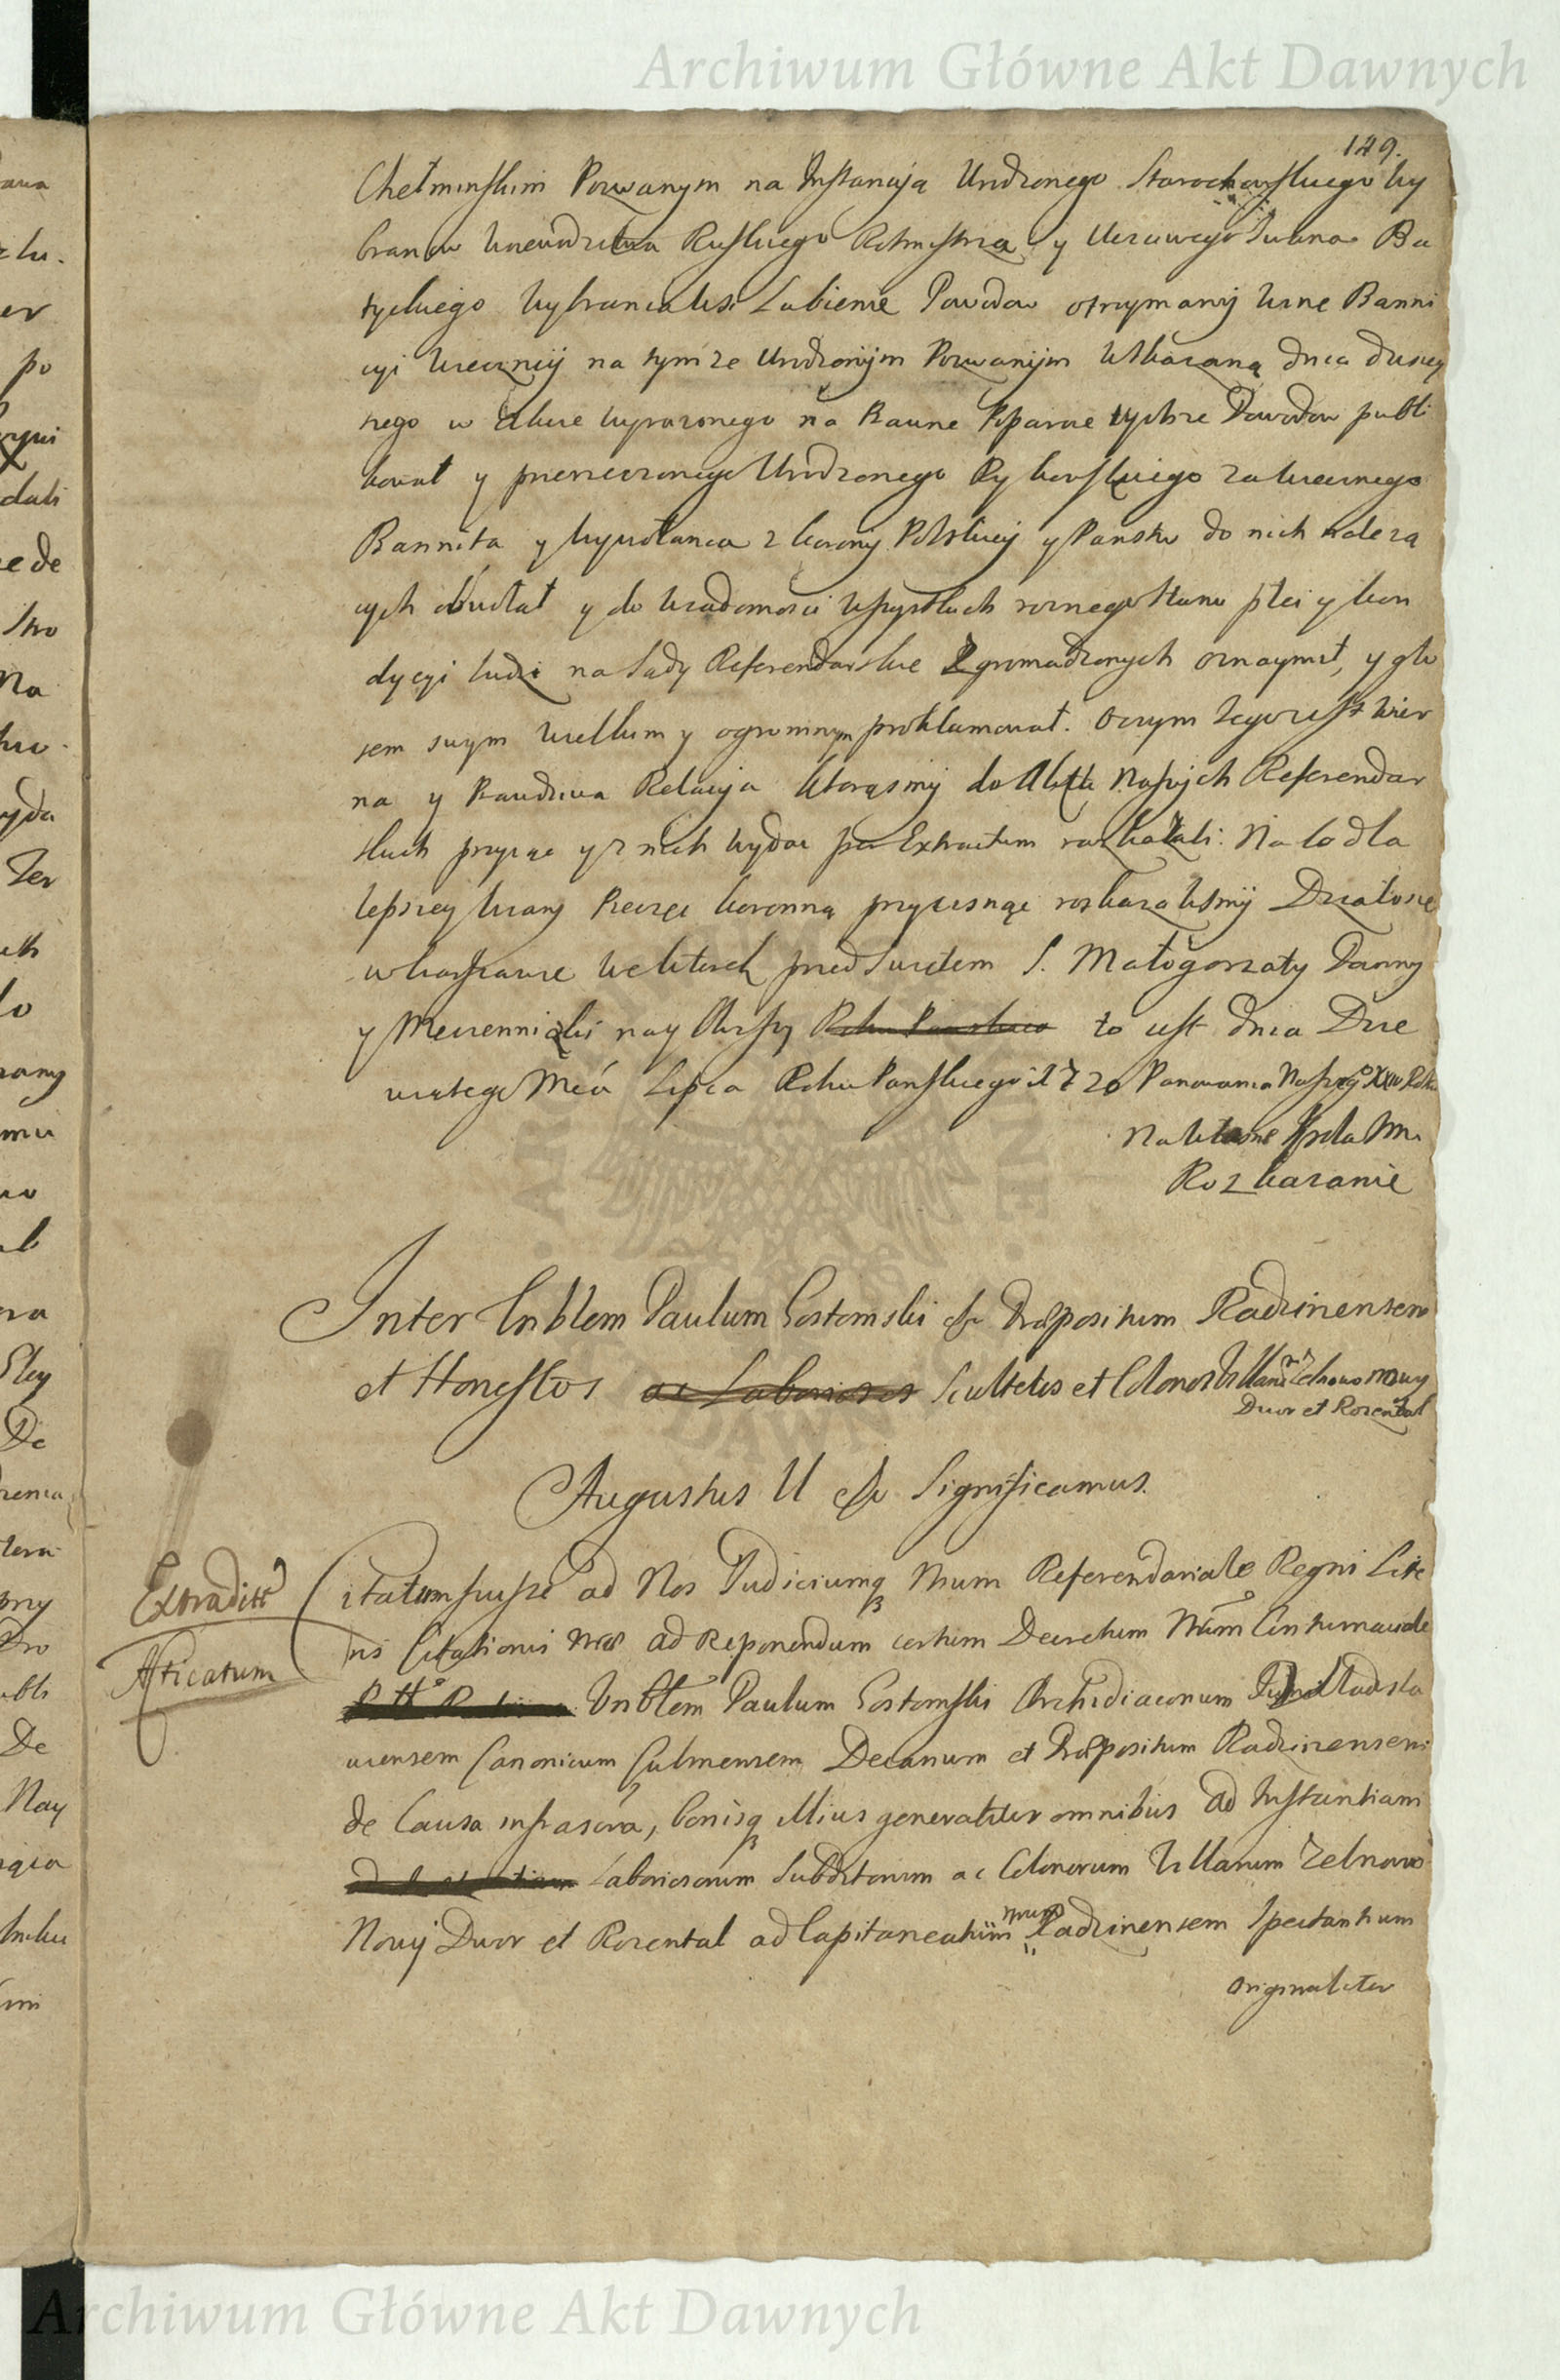 Archiwum Główne Akt Dawnych
129.
Chełminskim Pozwanym na Instancyją Urodzonego Starochowskiego Wy
brancow Woiewodztwa Ruskiego Rotmistrza y Uczciwego Iwana Ba
tyckiego Wybranca Wsi Lubienie Powodow otrzymany Banni
cyi Wieczney na tymze Urodzonym Pozwanym Wskazaną dnia dzisiey
szego w Akcie wyrazonego na Poparcie tychze Powodow publi
kował y pomienionego Urodzonego Rybowskiego za Wiecznego
Bannita y Wywołanca z Korony Polskiey y Panstw do nich nalezą
cych obwołał y do Wiadomosci Wszystkich roznego stanu płci y kon
dycyi ludzi na Sądy Referendarskie Zgromadzonych oznaymił, y gło
sem swym wielkim y ogromnym proklamował. O czym tego iest Wier
na y Prawdziwa Relacyja ktorąsmy do Akt Naszych Referendar
skich przyiąc y z nich wydac per Extractum roskazali. Na co dla
lepszey wiary Pieczęc koronną przycisnąc roskazalismy Działo się
w Warszawie we Wtorek przed Swiętem S. Małgorzaty Panny
y Męczenniczki nay blizszy Roku Panskiego to iest dnia Dzie
wiątego Mca Lipca Roku Panskiego 1720 Panowania Naszego XXIV Roku
Na Własne Krola Jmci
Rozkazanie
Inter Vnblem Paulum Gostomski &c Præpositum Radzinensem
et Honestos ac Laboriosos Scultetos et Colonos Villarum Zelnowo Nowy
Dwor et Rozental
Augustus II &c Significamus.
Extraditt
Afficatum
Citatum fuisse ad Nos Judiciumq Nrum Referendariale Regni Lite
ris Citationis Nræ ad Reponendum certum Decretum Nrum Contumaciale
Vnblem Paulum Gostomski Archidiaconum Wladisla
viensem Canonicum Culmensem Decanum et Præpositum Radzinensem
de Causa infrascra, bonisq illius generaliter omnibus ad Instantiam
Laboriosorum Subditorum ac Colonorum Villarum Zelnowo
Nowy Dwor et Rozental ad Capitaneatum nrum Radzinensem Spectantium
originaliter
Archiwum Główne Akt Dawnych